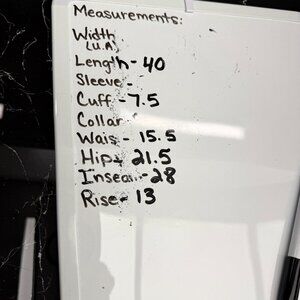 Measurements:
Width
(U.A)
Length - 40
Sleeve -
Cuff - 7.5
Collar
Wais - 15.5
Hip - 21.5
Inseam - 28
Rise - 13